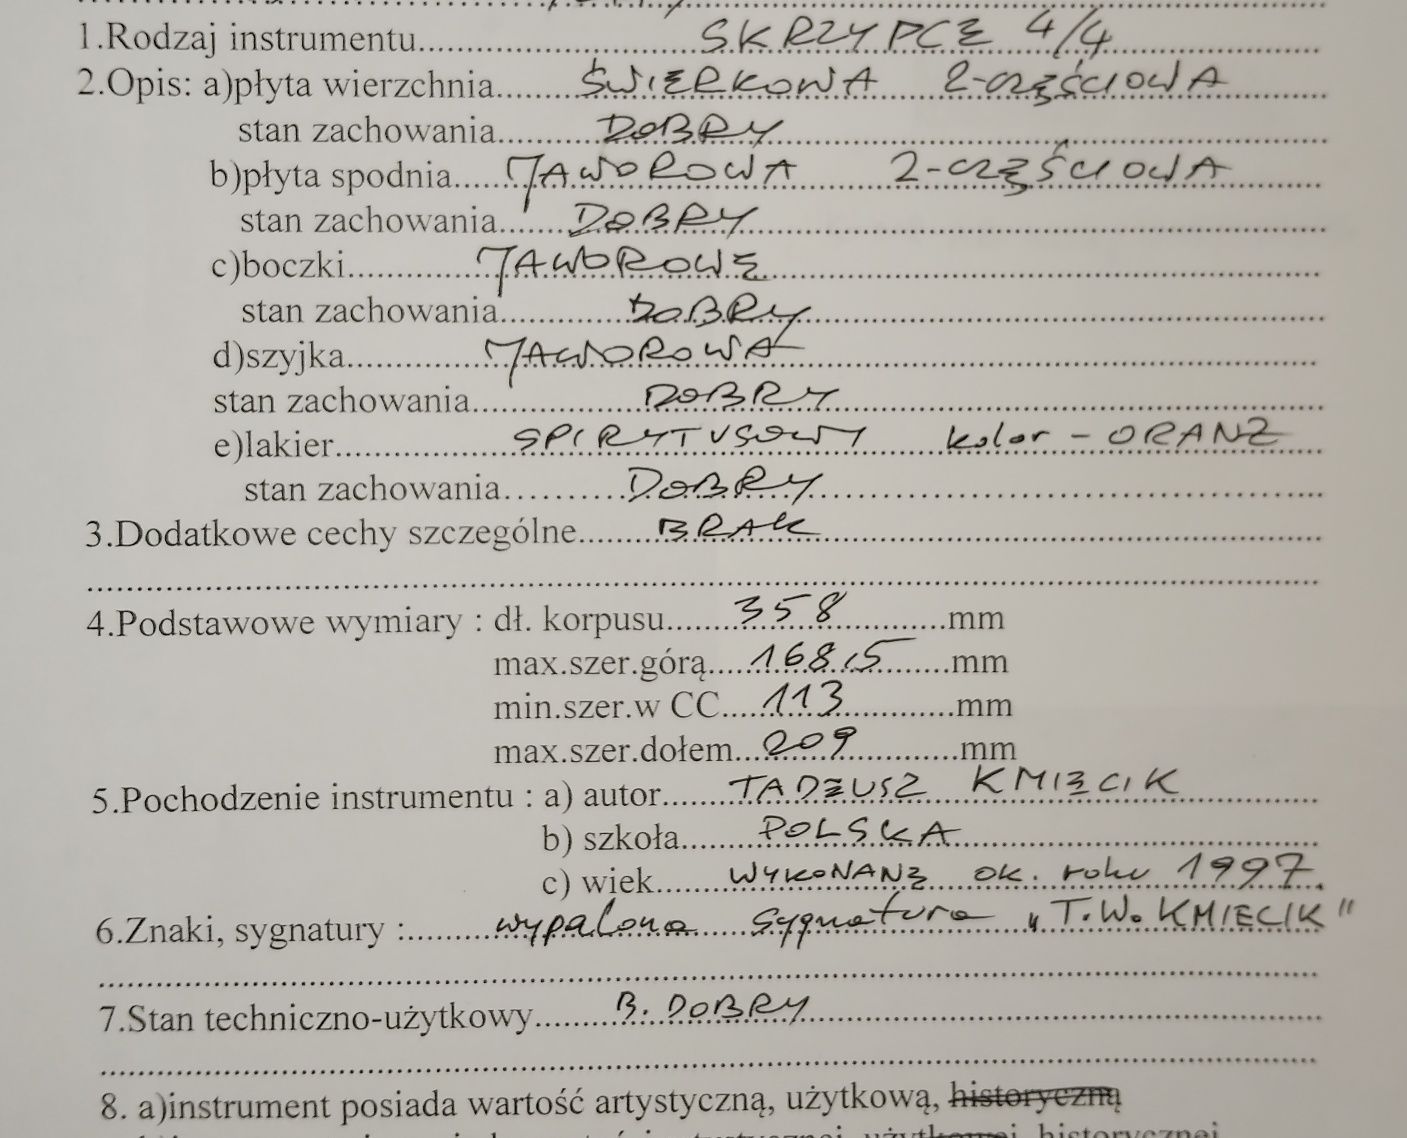 1.Rodzaj instrumentu..........SKRZYPCE 4/4..........
2.Opis: a)płyta wierzchnia..........ŚWIERKOWA 2-CZĘŚCIOWA
stan zachowania..........DOBRY..........
b)płyta spodnia.....JAWOROWA 2-CZĘŚCIOWA..........
stan zachowania..........DOBRY..........
c)boczki..........JAWOROWE..........
stan zachowania..........DOBRY..........
d)szyjka..........JAWOROWA..........
stan zachowania..........DOBRY..........
e)lakier..........SPIRYTUSOWY kolor - ORANŻ
stan zachowania..........DOBRY..........
3.Dodatkowe cechy szczególne..........BRAK..........
4.Podstawowe wymiary : dł. korpusu.......358..........mm
max.szer.górą....168,5.......mm
min.szer.w CC....113..........mm
max.szer.dołem...209..........mm
5.Pochodzenie instrumentu : a) autor.......TADEUSZ KMIECIK
b) szkoła........POLSKA..........
c) wiek.......WYKONANE ok. roku 1997.
6.Znaki, sygnatury :.........wypalona sygnatura „T.W. KMIECIK"
7.Stan techniczno-użytkowy........B. DOBRY..........
8. a)instrument posiada wartość artystyczną, użytkową, historyczną